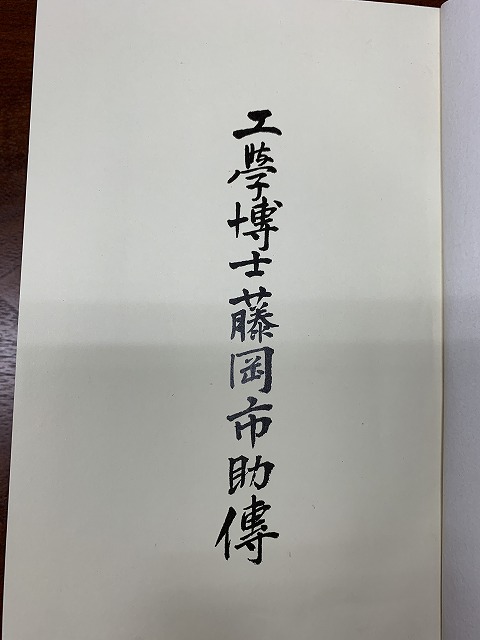 工學博士藤岡市助傳